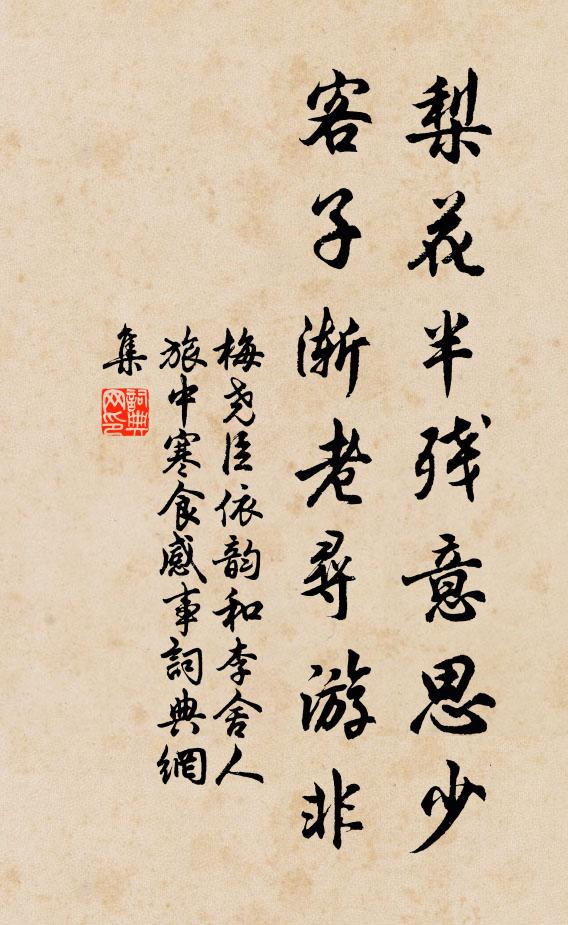 梨花半残意思少
客子渐老尋游非
梅尧臣依韵和李舍人
旅中寒食感事詞典網
集
詞典
网印